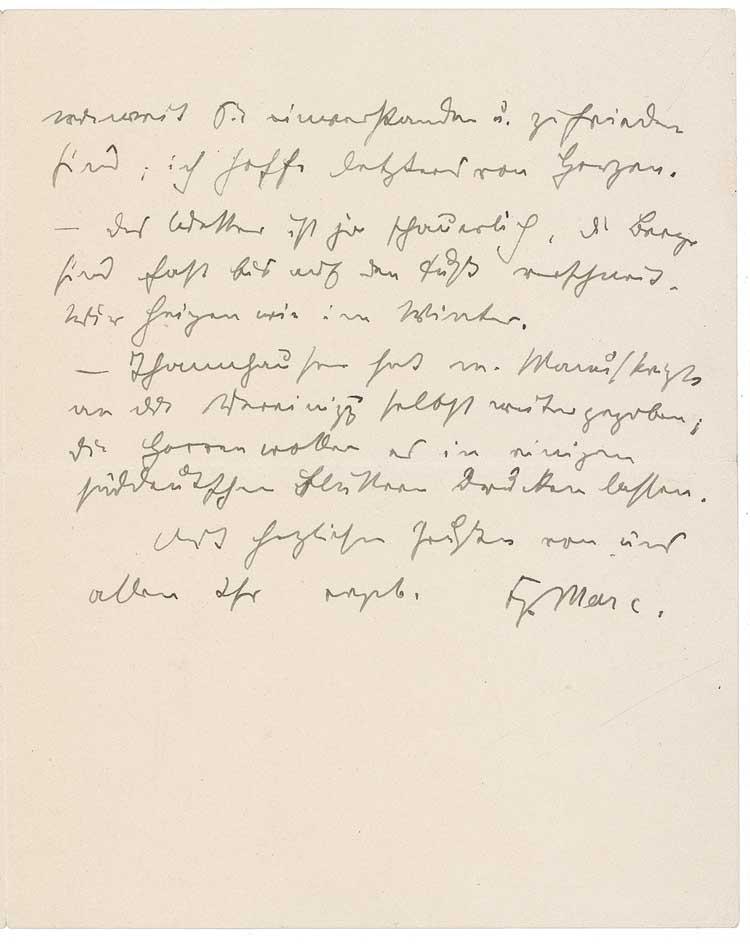 wieweit Sie einverstanden u. zufrieden
sind; ich hoffe letzteres von Herzen.
– Das Wetter ist ja schauerlich, die Berge
sind fast bis auf den Fuß verschneit.
Wir heizen wie im Winter.
– Thannhauser hat m. Manuskript
an die Vereinigg selbst weitergegeben;
die Herren wollen es in einigen
süddeutschen Blättern drucken lassen.
Mit herzlichen Grüßen von uns
allen Ihr ergeb. Fz. Marc.